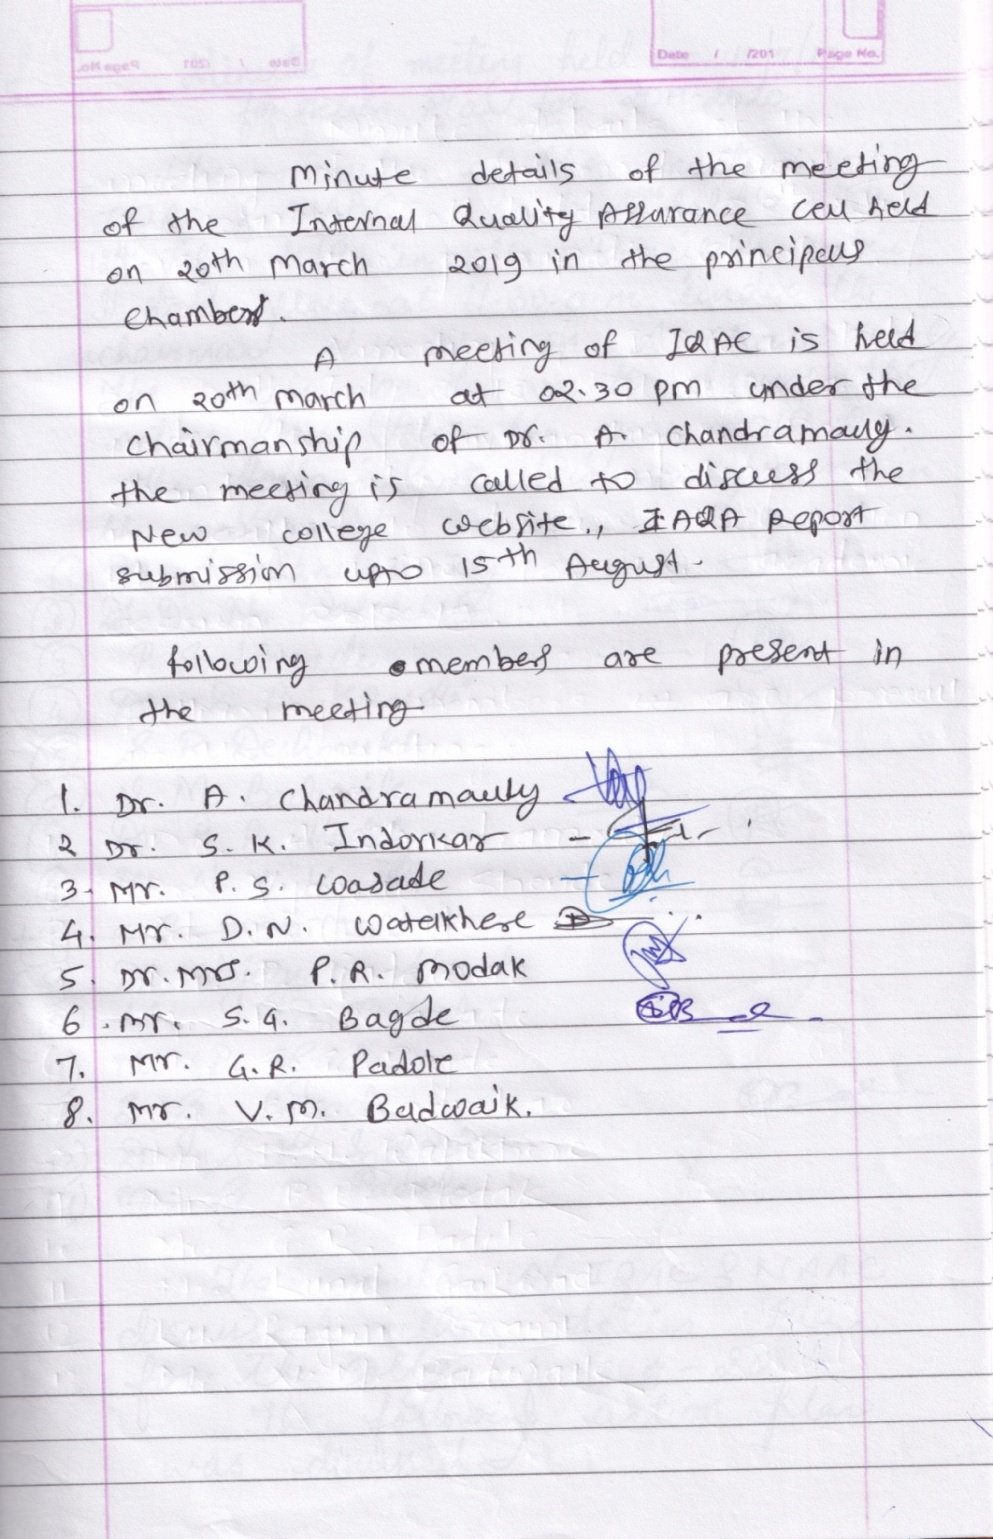 Date / /201 Page No.
Minute details of the meeting
of the Internal Quality Assurance Cell held
on 20th March 2019 in the principals
chambers.
A meeting of IQAC is held
on 20th March at 02.30 pm under the
Chairmanship of Dr. A. Chandramauly.
the meeting is called to discuss the
New college website., IAQA Report
submission upto 15th August.
following members are present in
the meeting
1. Dr. A. Chandramauly
2 Dr. S. K. Indorkar
3. Mr. P. S. Wasade
4. Mr. D. N. Watelkhere
5. Dr. Mrs. P. R. Modak
6. Mr. S. G. Bagde
7. Mr. G. R. Padole
8. Mr. V. M. Badwaik.